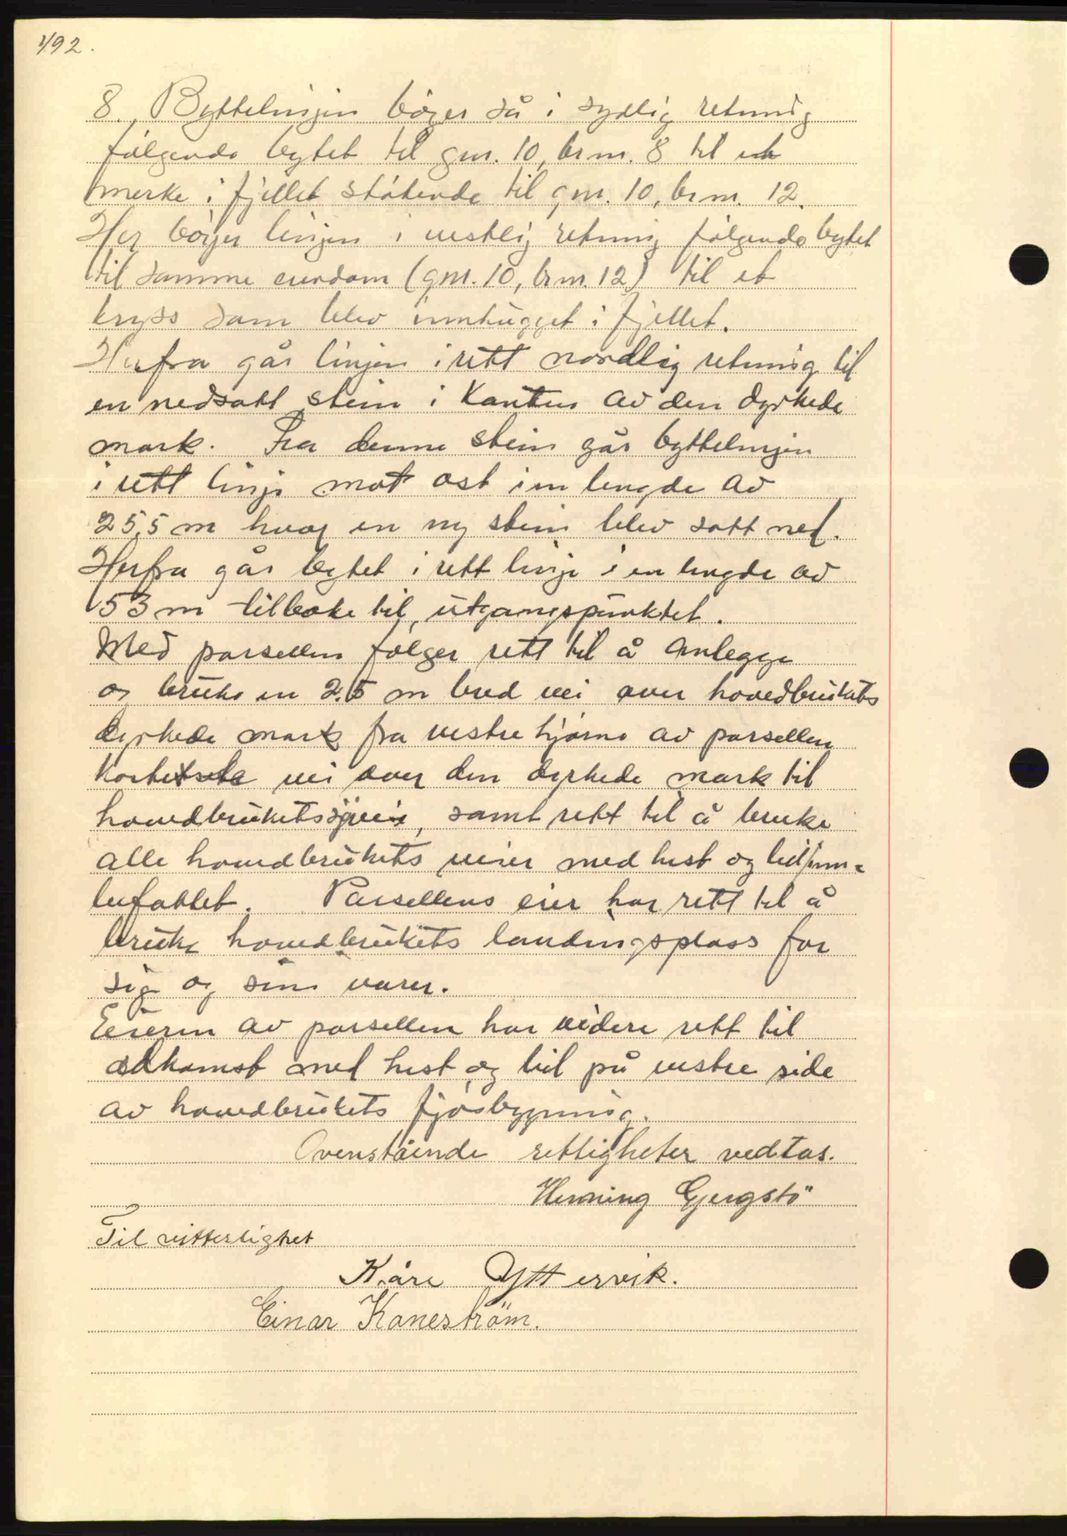 492.
8. Byttelinjen böyer så i sydlig retning
følgende bytet til gnr. 10, brnr. 8 til et
merke i fjellet støtende til gnr. 10, brnr. 12.
Her böyer linjen i vestlig retning følgende bytet
til samme eiendom (gnr. 10, brnr. 12) til et
kryss som blev innhugget i fjellet.
Herfra går linjen i rett nordlig retning til
en nedsatt stein i kanten av den dyrkede
mark. Fra denne stein går byttelinjen
i rett linje mot ost i en lengde av
25,5 m hvor en ny stein blev satt ned.
Herfra går bytet i rett linje i en lengde av
53 m tilbake til utgangspunktet.
Med parsellen følger rett til å anlegge
og bruke en 2.5 m bred vei over hovedbrukets
dyrkede mark fra vestre hjørne av parsellen
korteste vei over den dyrkede mark til
hovedbrukets, samt rett til å bruke
alle hovedbrukets veier med hest og bil inn-
befattet. Parsellens eier har rett til å
bruke hovedbrukets landingsplass for
sig og sine varer.
Eieren av parsellen har videre rett til
adkomst med hest og bil på vestre side
av hovedbrukets fjøsbygning.
Ovenstående rettigheter vedtas.
Henning Gjengstö
Til vitterlighet
Kåre Yttervik.
Einar Kaneström.